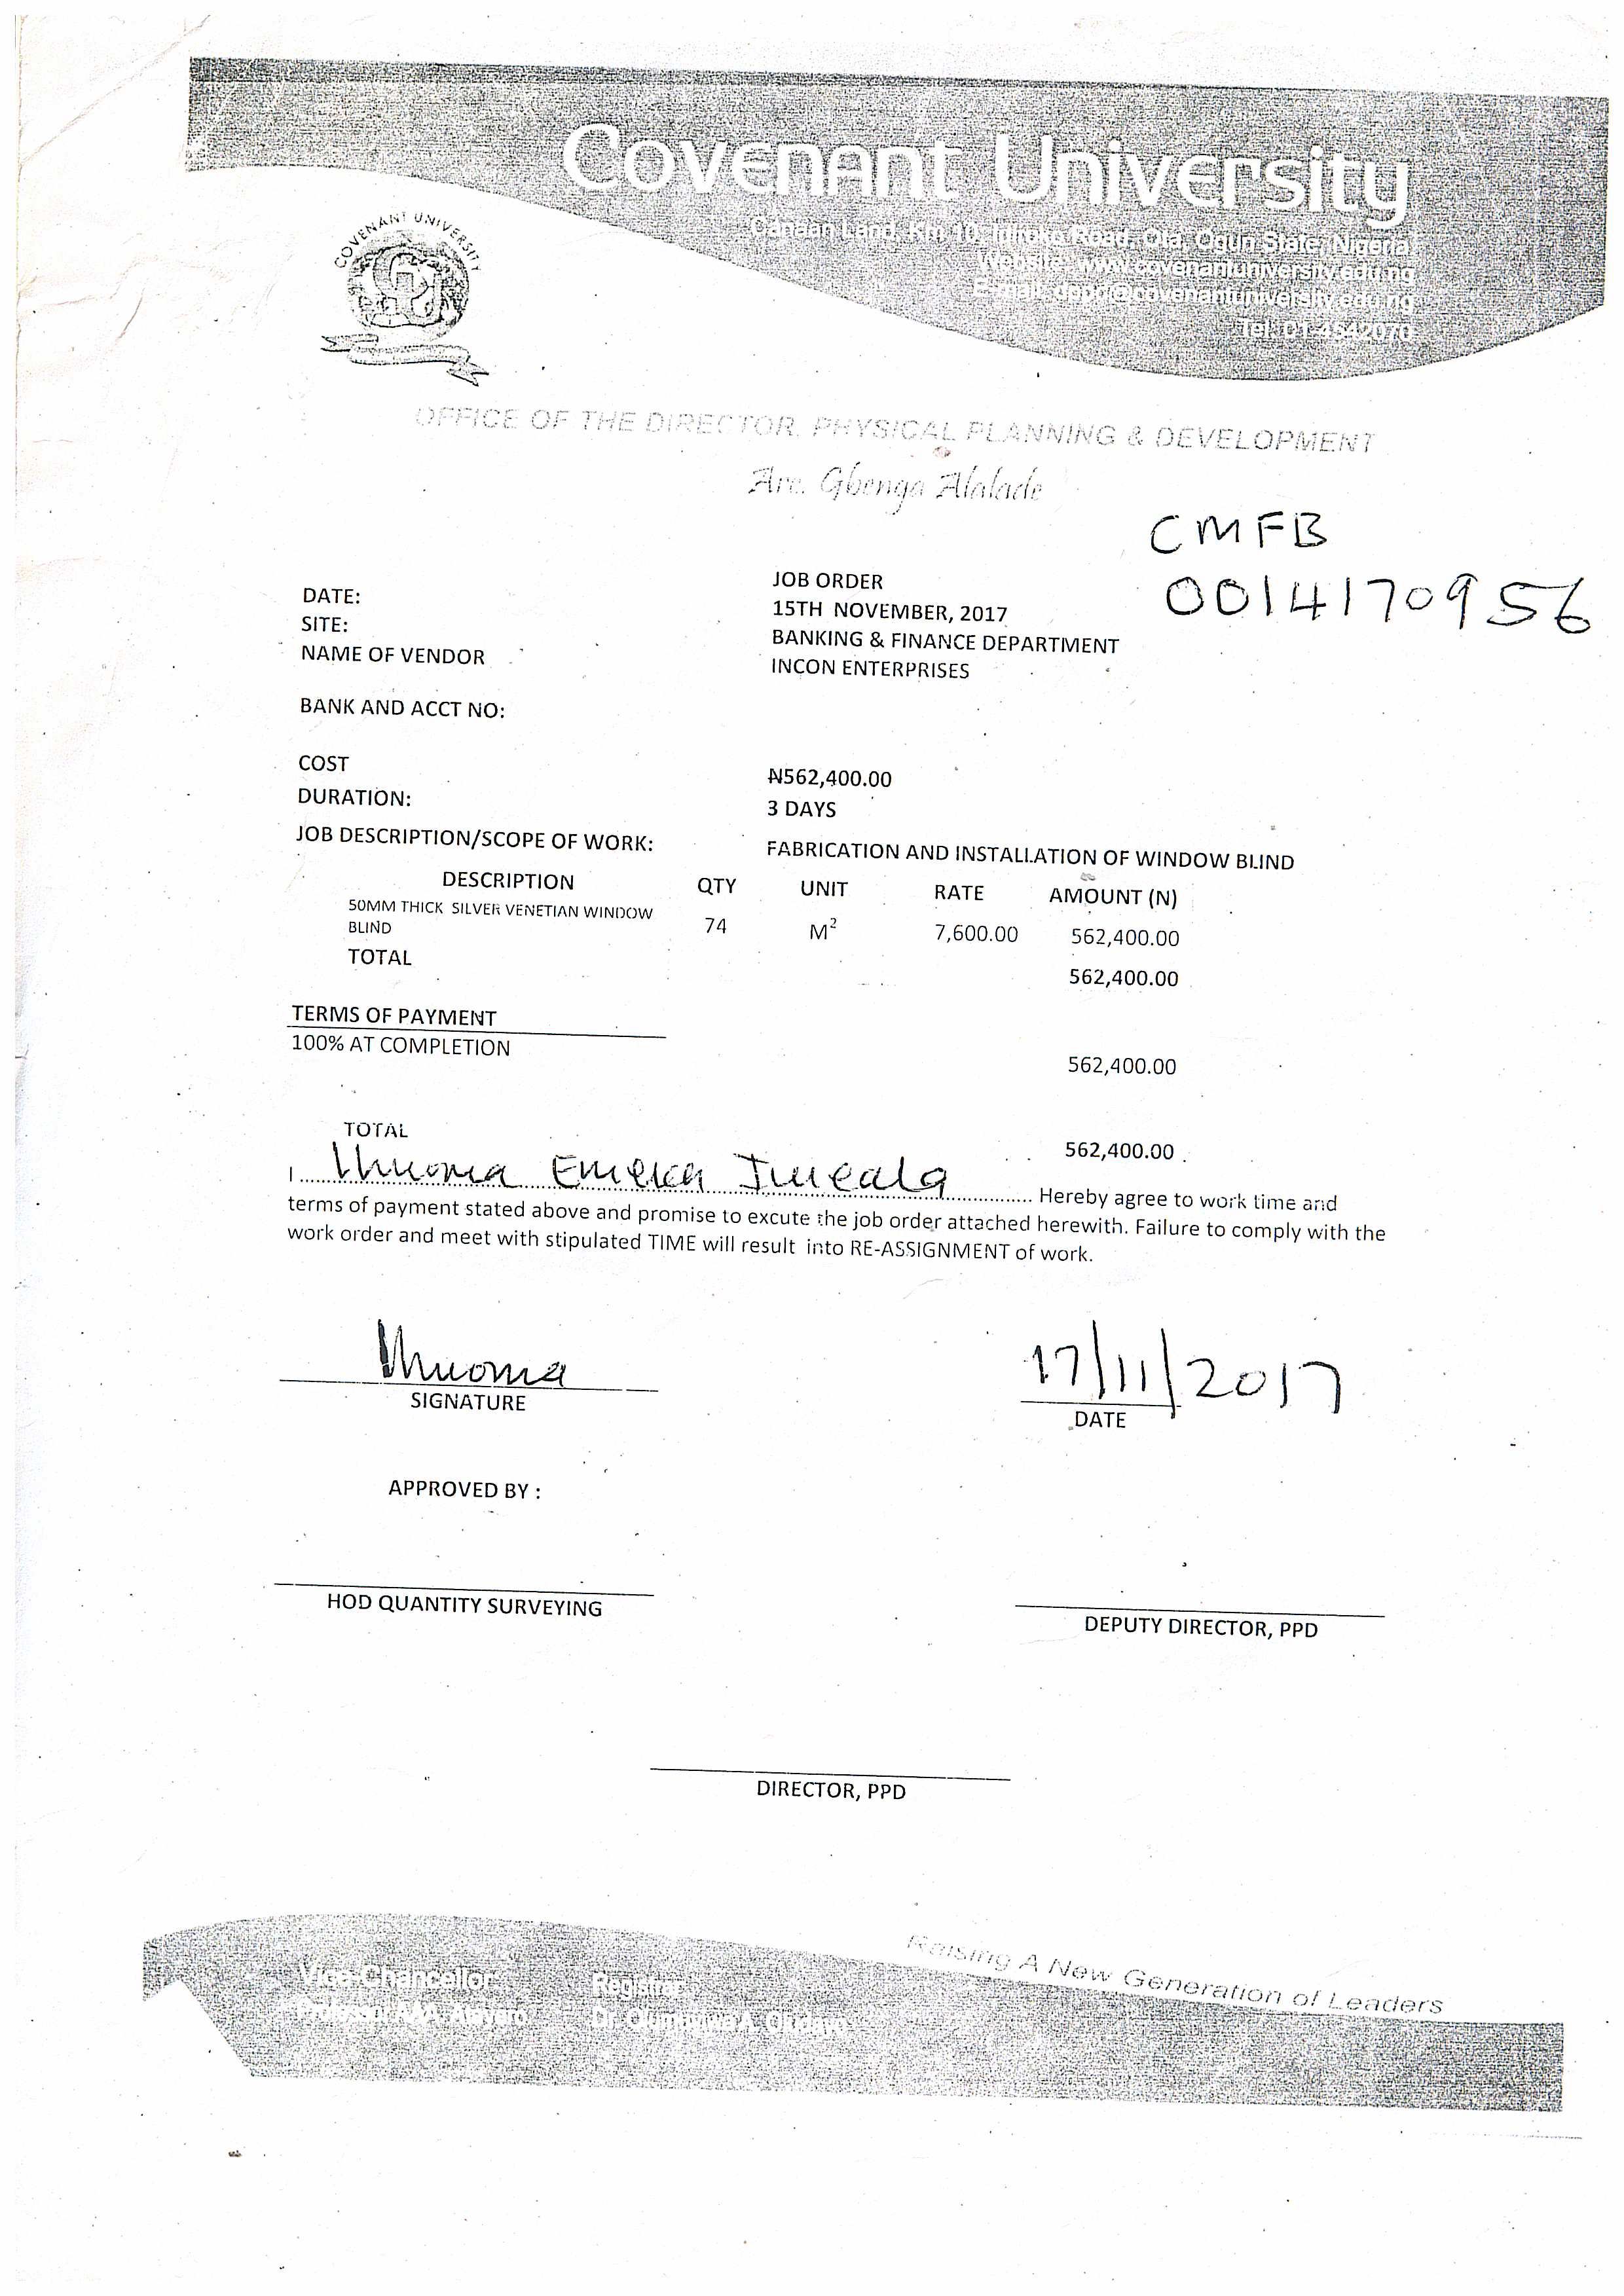 Covenant University
Canaan Land, Km 10, Idiroko Road, Ota, Ogun State, Nigeria
Website: www.covenantuniversity.edu.ng
E-mail: dppd@covenantuniversity.edu.ng
Tel: 01-4542070
COVENANT UNIVERSITY
OFFICE OF THE DIRECTOR, PHYSICAL PLANNING & DEVELOPMENT
Arc. Gbenga Alalade
CMFB
0014170956
JOB ORDER
DATE: 15TH NOVEMBER, 2017
SITE: BANKING & FINANCE DEPARTMENT
NAME OF VENDOR INCON ENTERPRISES
BANK AND ACCT NO:
COST ₦562,400.00
DURATION: 3 DAYS
JOB DESCRIPTION/SCOPE OF WORK: FABRICATION AND INSTALLATION OF WINDOW BLIND
DESCRIPTION QTY UNIT RATE AMOUNT (N)
50MM THICK SILVER VENETIAN WINDOW
BLIND 74 M² 7,600.00 562,400.00
TOTAL 562,400.00
TERMS OF PAYMENT
100% AT COMPLETION 562,400.00
TOTAL 562,400.00
I Ihuoma Emeka Jineala Hereby agree to work time and
terms of payment stated above and promise to excute the job order attached herewith. Failure to comply with the
work order and meet with stipulated TIME will result into RE-ASSIGNMENT of work.
Ihuoma 17/11/2017
SIGNATURE DATE
APPROVED BY :
HOD QUANTITY SURVEYING DEPUTY DIRECTOR, PPD
DIRECTOR, PPD
Raising A New Generation of Leaders
Vice-Chancellor Registrar
Professor AAA. Atayero Dr. Olumuyiwa A. Oludayo